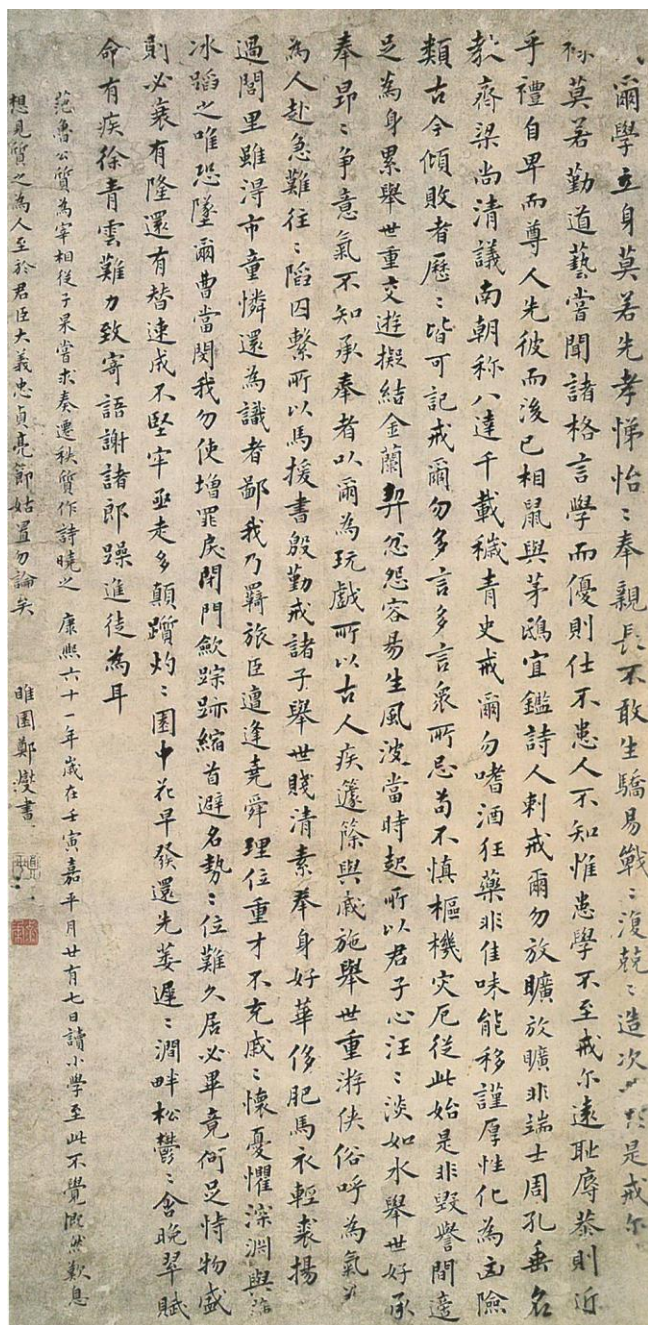 爾學立身莫若先孝悌怡〻奉親長不敢生驕易戰〻復兢〻造次必於是戒尔
祿莫若勤道藝嘗聞諸格言學而優則仕不患人不知惟患學不至戒尔遠恥辱恭則近
乎禮自卑而尊人先彼而後己相鼠與茅鴟宜鑑詩人刺戒爾勿放曠放曠非端士周孔垂名
教齊梁尚清議南朝称八達千載穢青史戒爾勿嗜酒狂藥非佳味能移謹厚性化為凶險
類古今傾敗者歷〻皆可記戒爾勿多言多言眾所忌苟不慎樞機灾厄從此始是非毀譽間適
足為身累舉世重交遊擬結金蘭契忿怨容易生風波當時起所以君子心汪〻淡如水舉世好承
奉昂〻争意氣不知承奉者以爾為玩戲所以古人疾籧篨與戚施舉世重游俠俗呼為氣
為人赴急難往〻陷囚繫所以馬援書殷勤戒諸子舉世賤清素奉身好華侈肥馬衣輕裘揚
過閭里雖得市童憐還為識者鄙我乃羇旅臣遭逢堯舜理位重才不充戚〻懷憂懼深淵與
冰蹈之唯恐墜爾曹當閔我勿使增罪戾閉門歛踪跡縮首避名勢〻位難久居必畢竟何足恃物盛
則必衰有隆還有替速成不堅牢亟走多顛躓灼〻園中花早發還先萎遲〻澗畔松鬱〻含晚翠賦
命有疾徐青雲難力致寄語謝諸郎躁進徒為耳
范魯公質為宰相從子杲嘗求奏遷秩質作詩曉之 康熙六十一年歲在壬寅嘉平月廿有七日讀小學至此不覺慨然歎息
想見質之為人至於君臣大義忠貞亮節姑置勿論矣 睢園鄭燮書